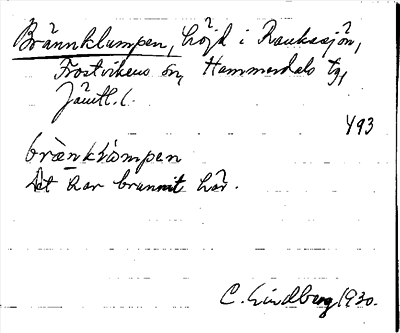 Brännklumpen, höjd i Raukasjön,
Frostvikens sn, Hammerdals tg,
Jämtl. l.
493
Det har brunnit här.
C. Lindberg 1930.